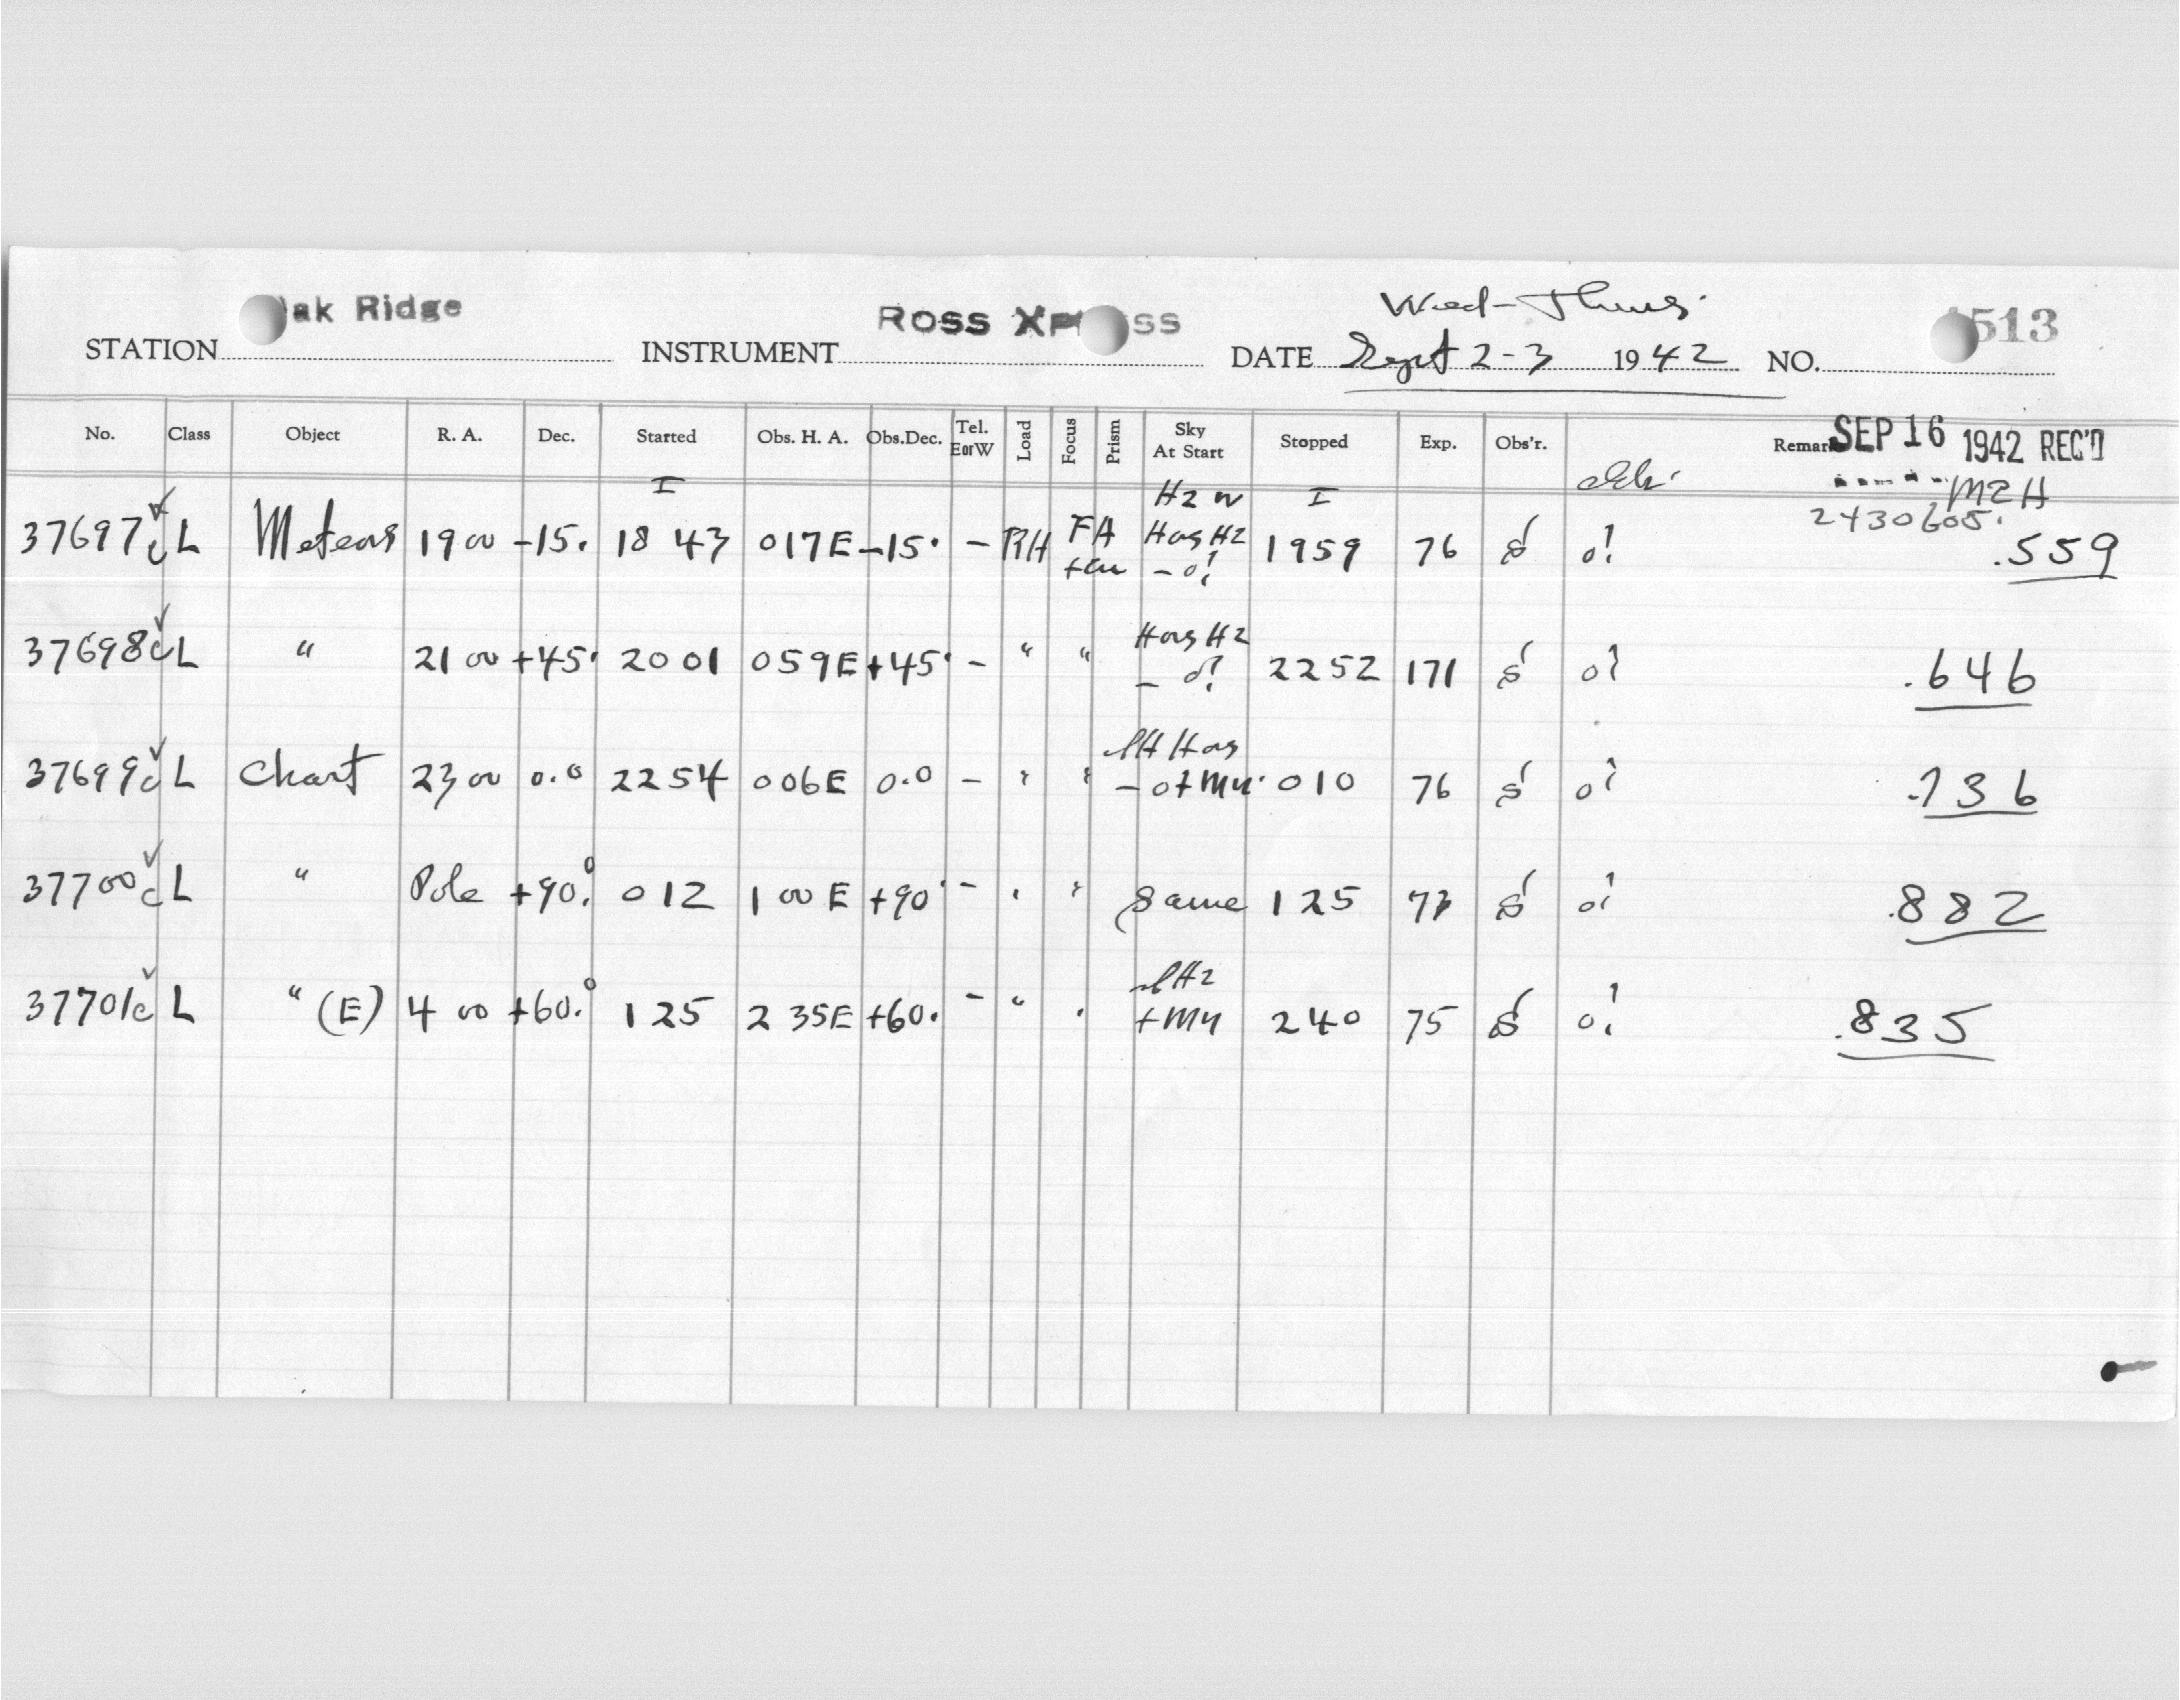 ak Ridge Ross XP ss Wed-Thurs. 513
STATION INSTRUMENT DATE Sept 2-3 1942 NO.
No. Class Object R. A. Dec. Started Obs. H. A. Obs.Dec. Tel. EorW Load Focus Prism Sky At Start Stopped Exp. Obs'r. Remar SEP 16 1942 REC'D
I Hz W I MZH
2430605.
37697c L Meteors 19 00 -15. 18 43 0 17E -15. - RH FA Hz 1959 76 o! .559
37698c L " 21 00 +45. 20 01 0 59E +45. - " " Hz - o! 2252 171 o! .646
37699c L Chart 23 00 0.0 22 54 0 06E 0.0 - " " 0 10 76 o! .736
37700c L " Pole +90.0 0 12 1 00 E +90. - " " Same 1 25 73 o! .882
37701c L " (E) 4 00 +60.0 1 25 2 35E +60. - " " 2 40 75 o! .835